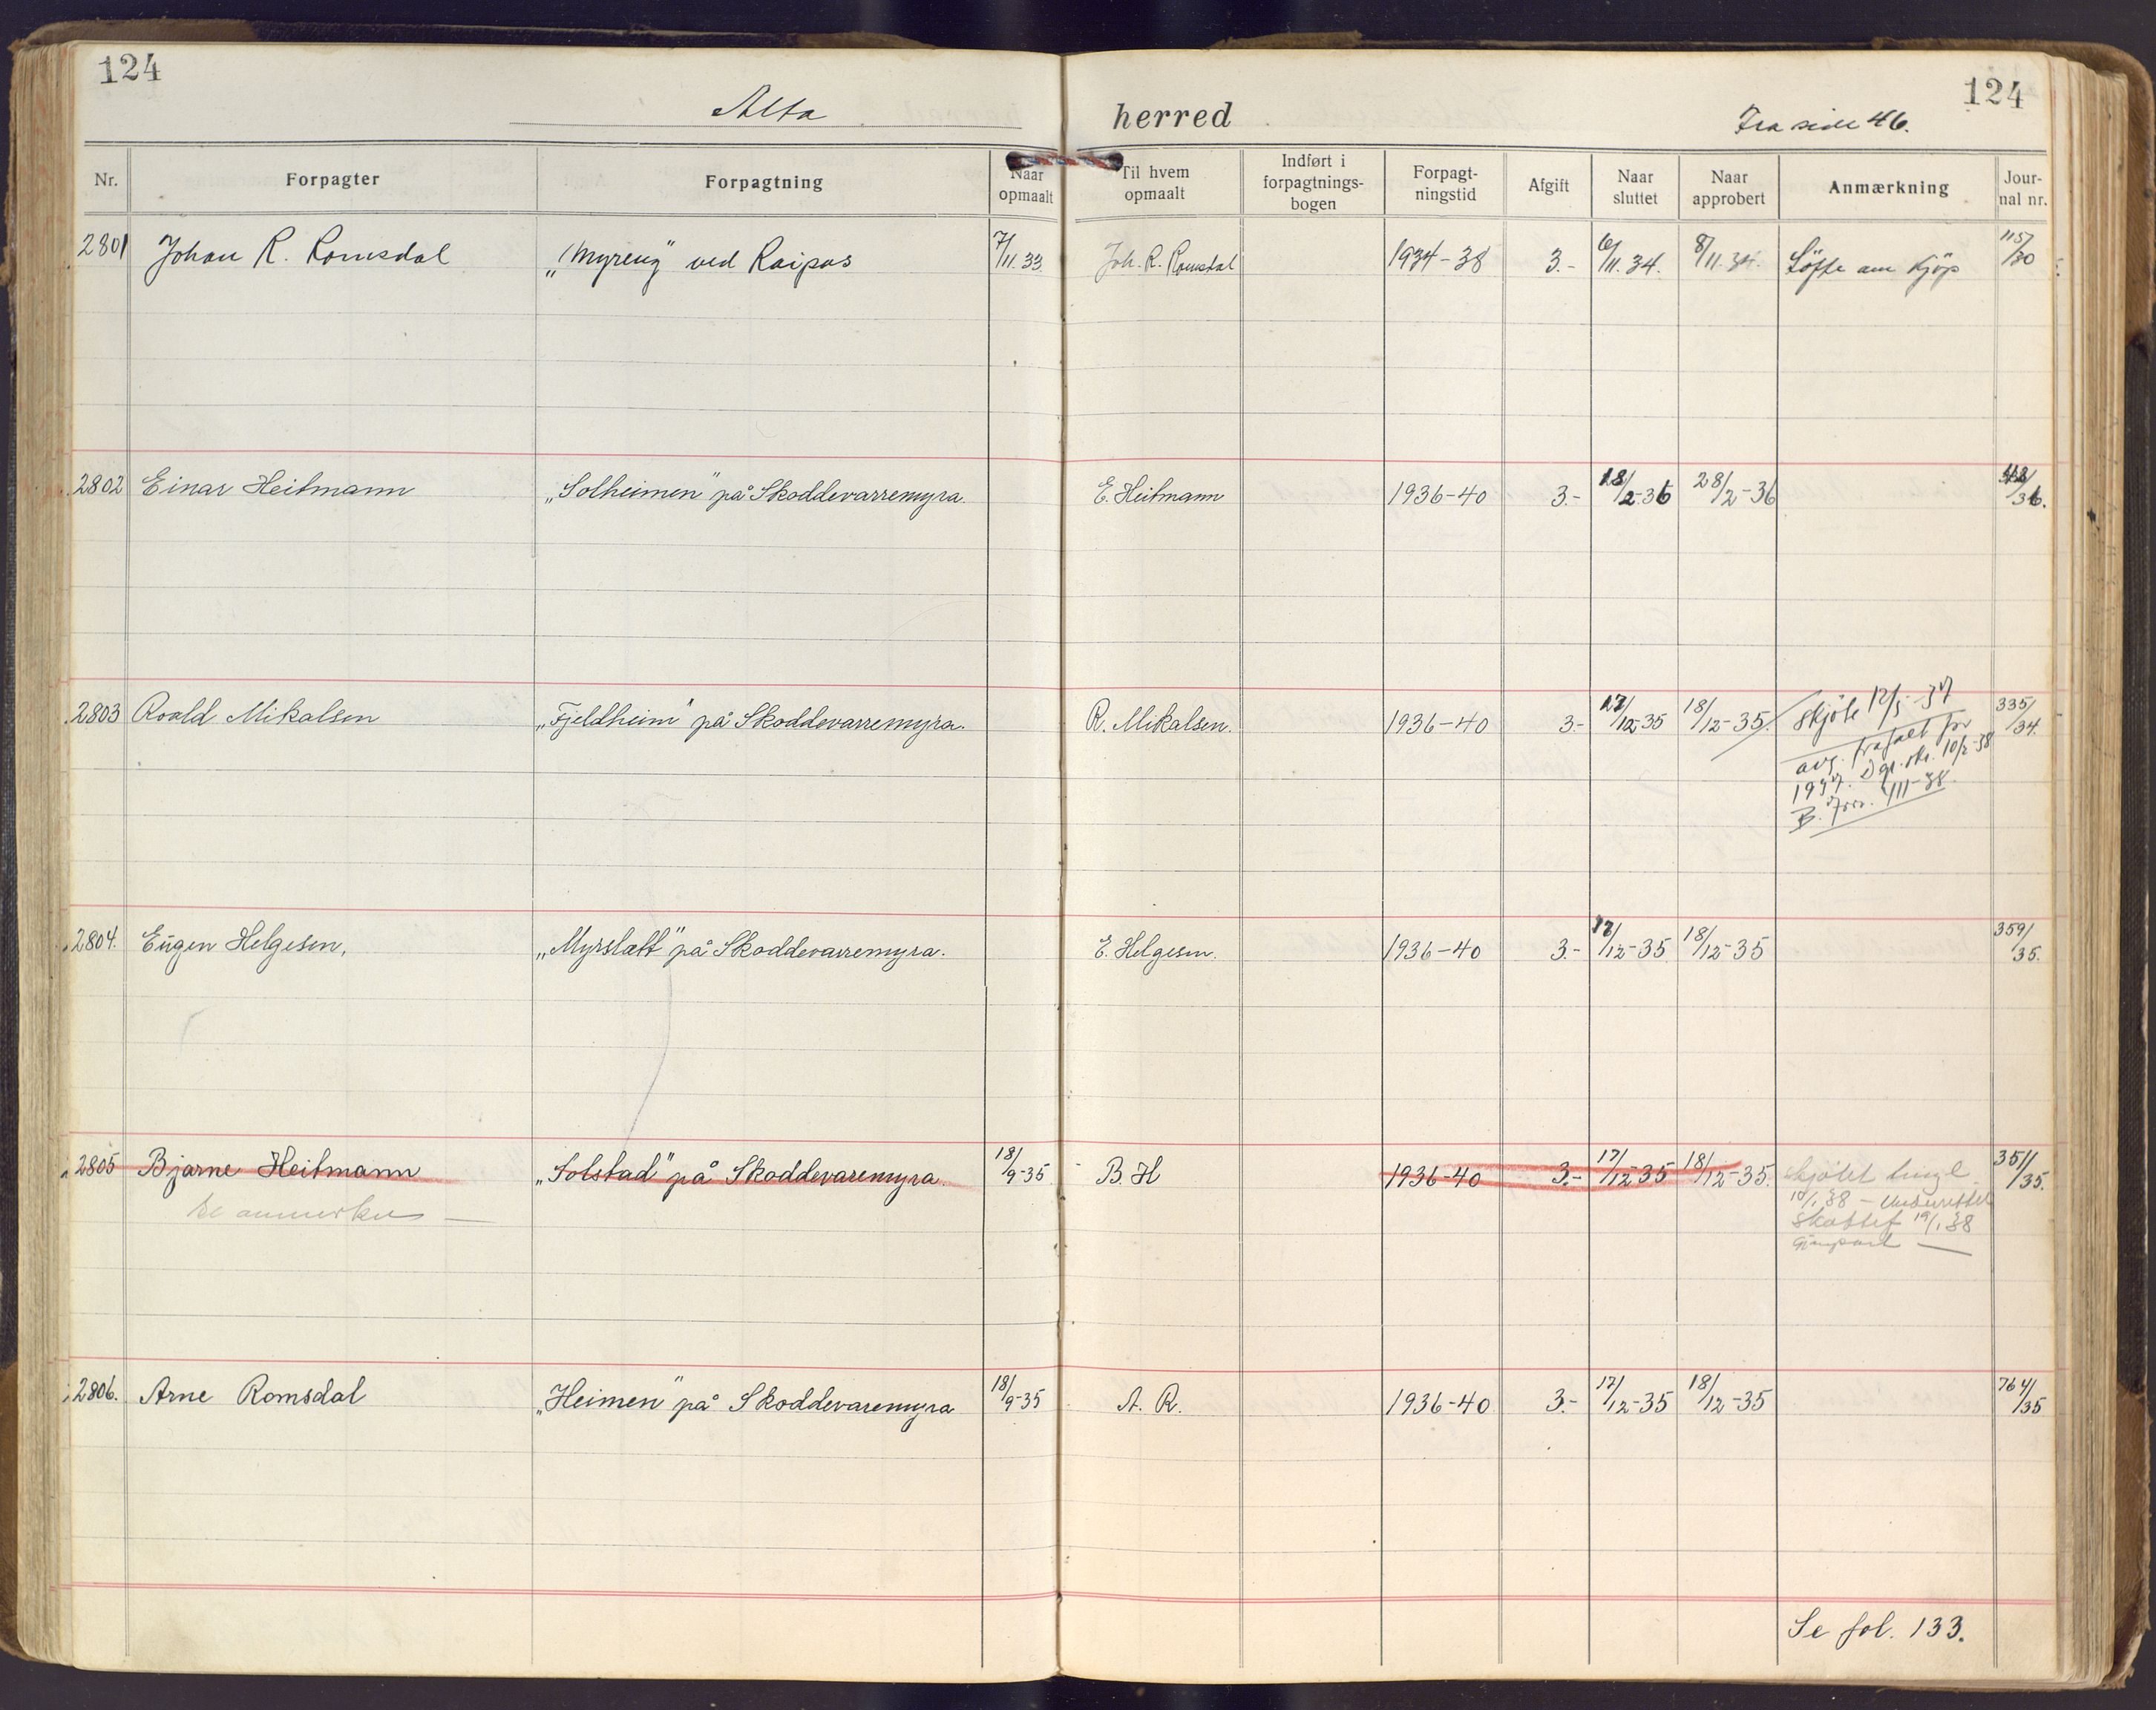 124
124
Alta herred
Fra side 46.
Nr. Forpagter Forpagtning Naar opmaalt Til hvem opmaalt Indført i forpagtnings-bogen Forpagt-ningstid Afgift Naar sluttet Naar approbert Anmærkning Jour-nal nr.
2801 Johan R. Romsdal „Myreng" ved Raipas 7/11.33. Joh. R. Romsdal 1934-38 3.- 6/11.34. 8/11.34. Löfte om kjöp 1157/30
2802 Einar Heitmann „Solheimen" på Skoddevarremyra. E. Heitmann 1936-40 3.- 18/2-36 28/2-36 /36.
2803 Roald Mikalsen „Fjeldheim" på Skoddevarremyra. R. Mikalsen. 1936-40 3.- 17/12-35 18/12-35. Skjöte 12/5-37 335/34.
avg. frafalt for
1937. Dgl. skr. 10/2-38
B. Jour. 111-38.
2804. Eugen Helgesen, „Myrslætt" på Skoddevarremyra. E. Helgesen. 1936-40 3.- 17/12-35 18/12-35 359/35.
2805 Bjarne Heitmann „Solstad" på Skoddevaremyra. 18/9-35 B. H 1936-40 3.- 17/12-35 18/12-35. skjötet tingl. 351/35.
se anmerkn
10/1 38 - Underrettet
skattef 19/1 38
Gjenpart
2806. Arne Romsdal „Heimen" på Skoddevaremyra 18/9-35 A. R. 1936-40 3.- 17/12-35 18/12-35 764/35
Se fol. 133.